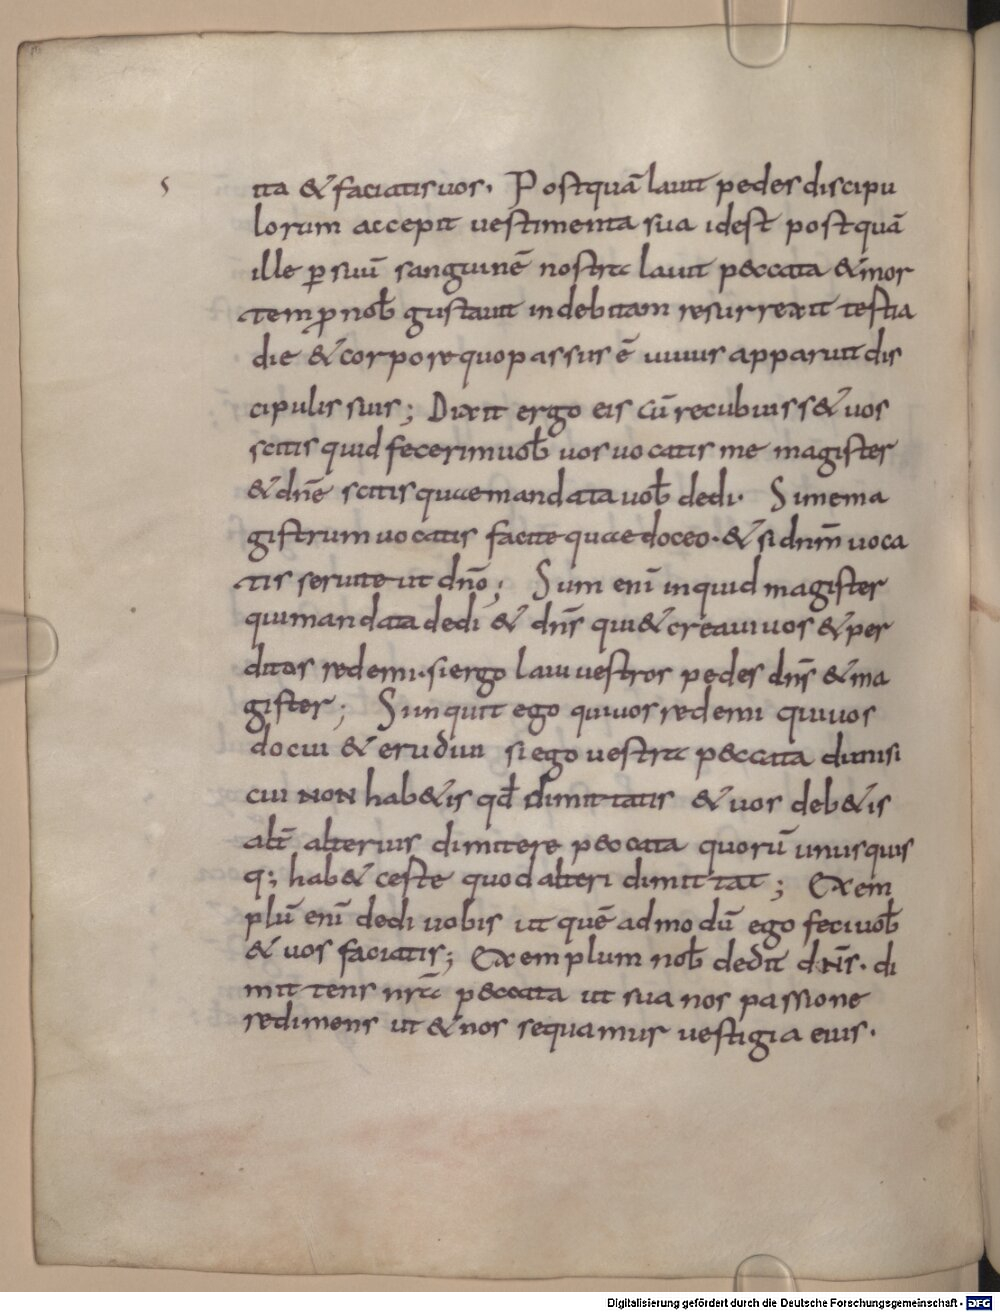 s
ita & faciatis uos. Postquā lauit pedes discipu
lorum accepit uestimenta sua idest postquā
ille ꝑ suū sanguinē nostra lauit peccata & mor
tem ꝓ nob̄ gustauit indebitam resurrexit tertia
die & corpore quo passus ē uiuus apparuit dis
cipulis suis; Dixit ergo eis cū recubuiss& uos
scitis quid fecerim uob̄ uos uocatis me magister
& dn̄e scitis quae mandata uob̄ dedi. Si me ma
gistrum uocatis facite quae doceo. & si dn̄m uoca
tis seruite ut dn̄o; Sum enī inquid magister
qui mandata dedi & dn̄s qui & creaui uos & per
ditos redemi. si ergo laui uestros pedes dn̄s & ma
gister; Si inquit ego qui uos redemi qui uos
docui & erudiui si ego uestra peccata dimisi
cui NON hab&is qd̄ dimittatis & uos deb&is
alt̄ alterius dimitere peccata quorū unusquis
q; hab& ceste quod alteri dimittat; Exem
plū enī dedi uobis ut quē ad modū ego feci uob̄
& uos faciatis; Exemplum nob̄ dedit dN̄s. di
mittens nr̄a peccata ut sua nos passione
redimens ut & nos sequamus uestigia eius.
Digitalisierung gefördert durch die Deutsche Forschungsgemeinschaft - DFG